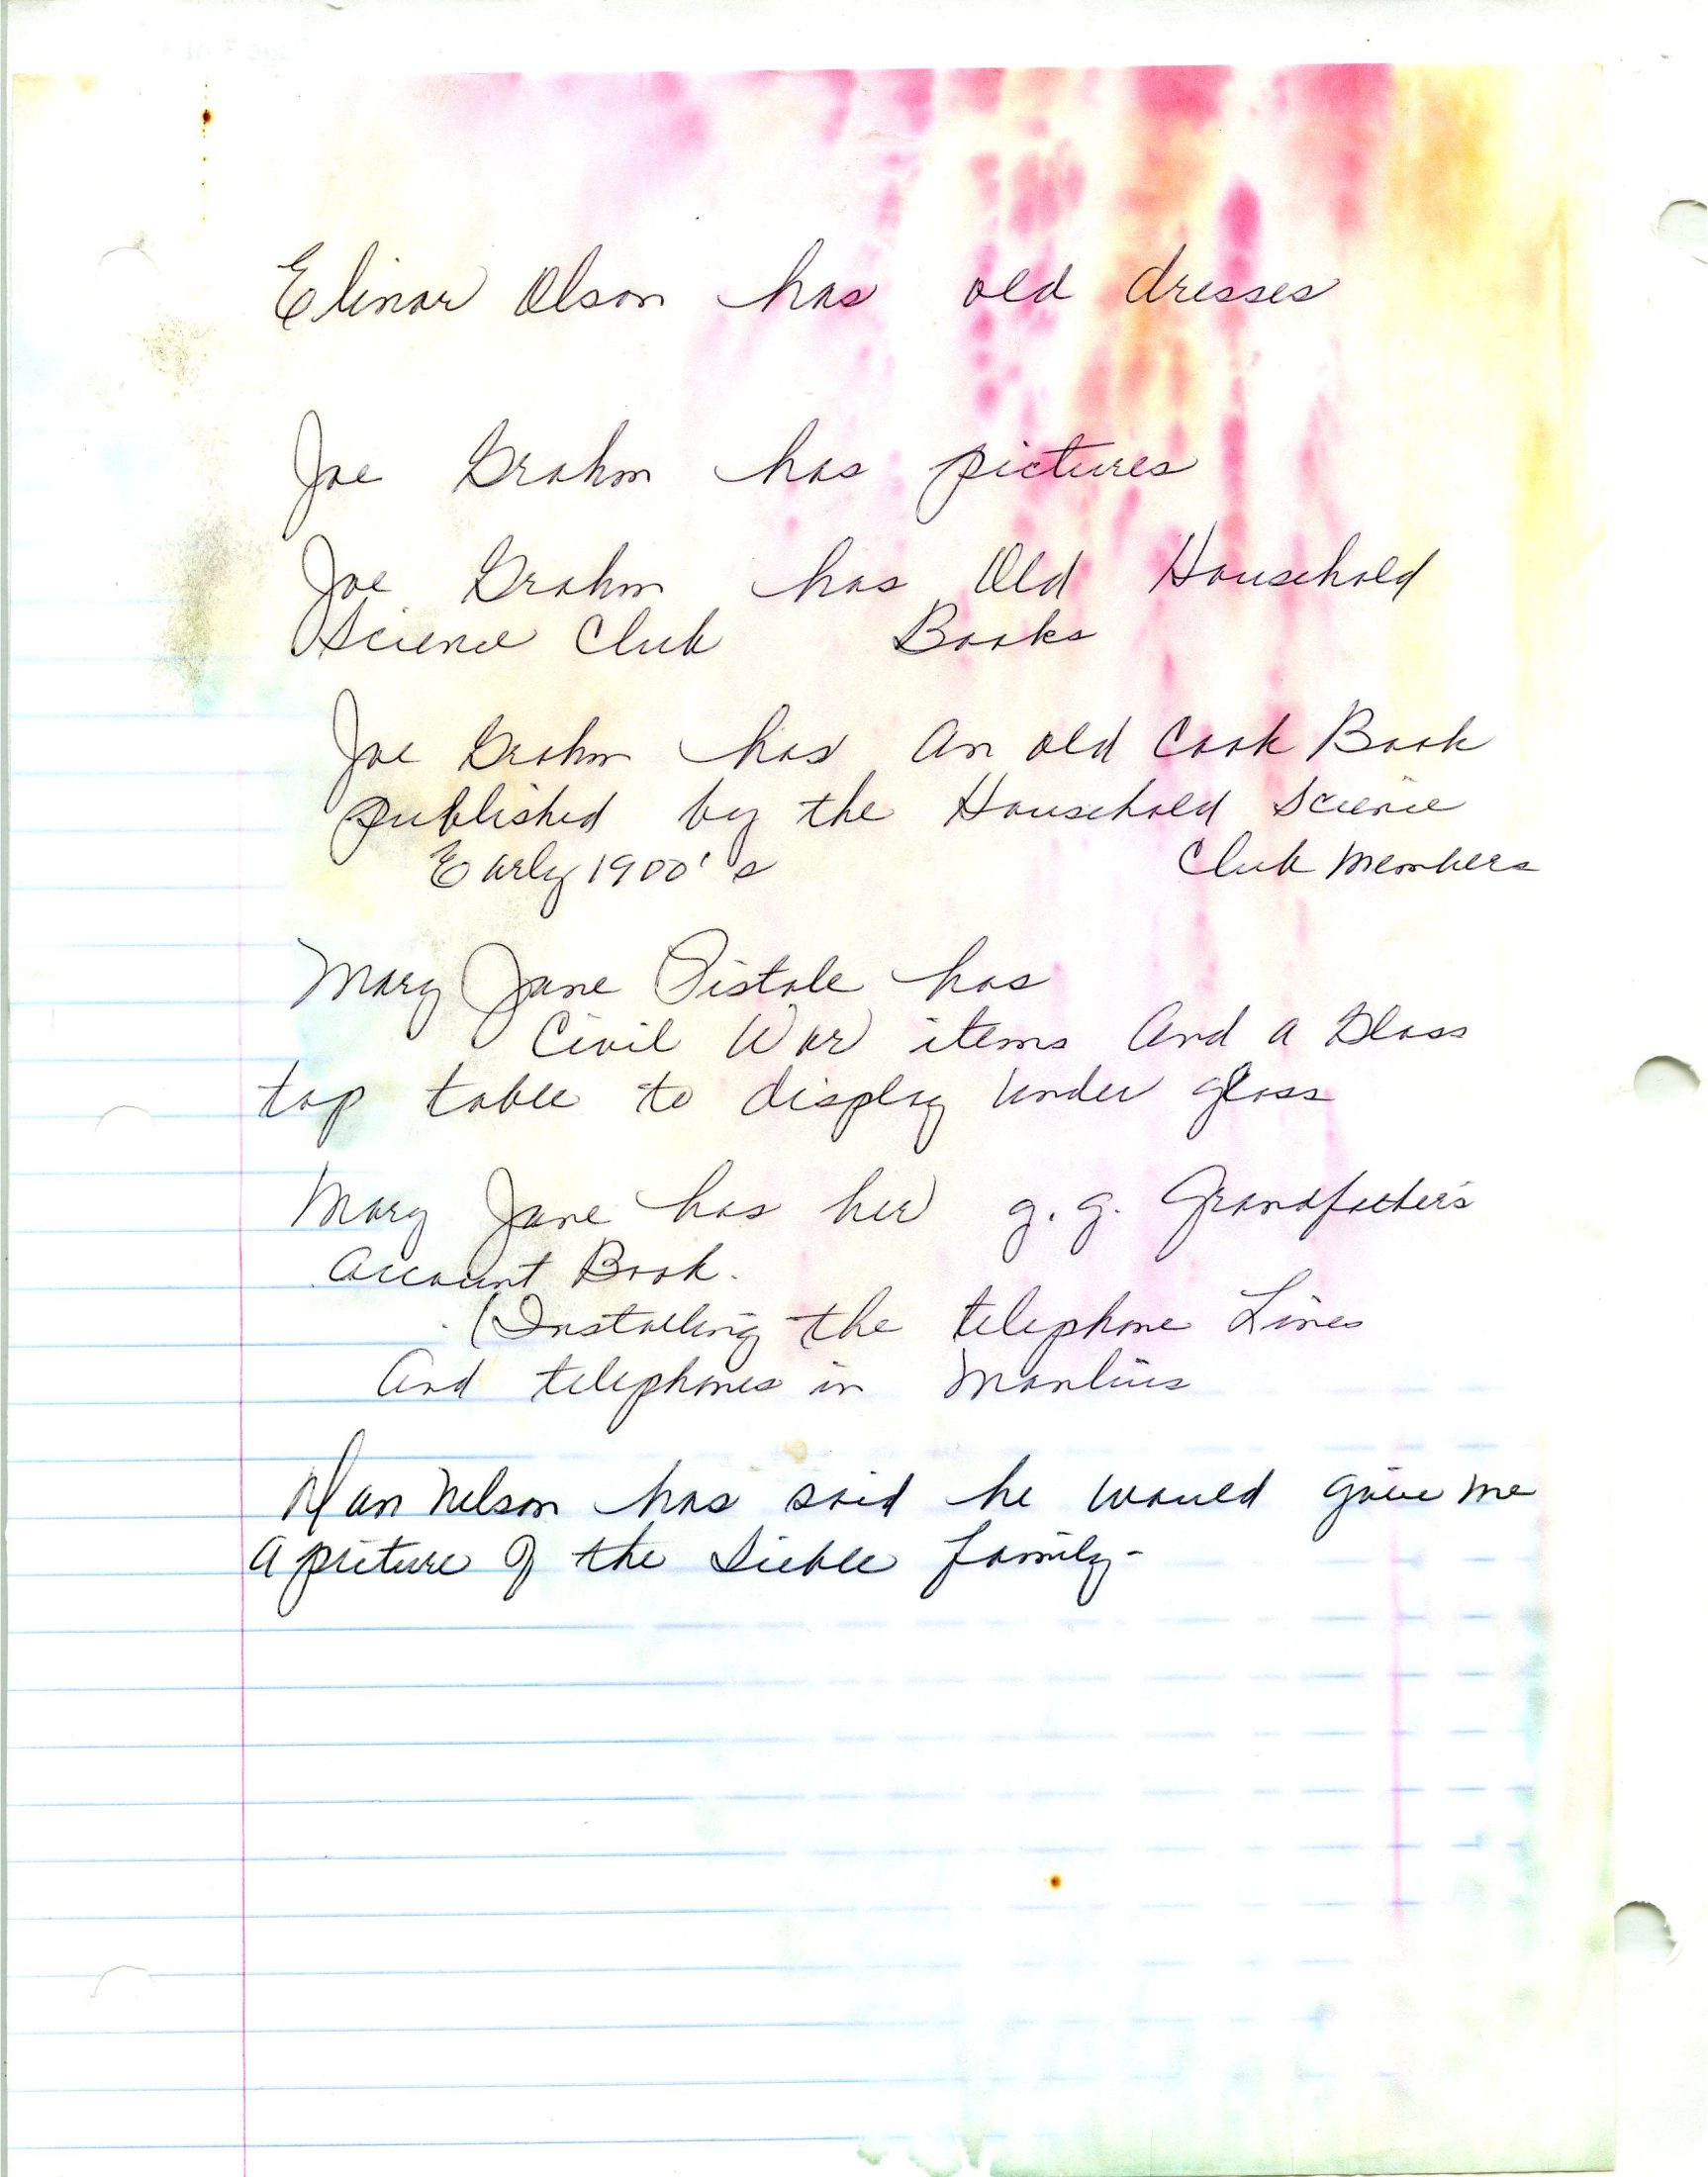 Elinor Olson has old dresses
Joe Grahm has pictures
Joe Grahm has Old Household
Science Club Books
Joe Grahm has An old Cook Book
published by the Household Science
Early 1900's Club Members
Mary Jane Pistole has
Civil War items And a Glass
top table to display under glass
Mary Jane has her g.g. Grandfather's
Account Book.
(Installing the telephone Lines
And telephones in Manlius
Dan Nelson has said he would give me
A picture of the Sieble family-